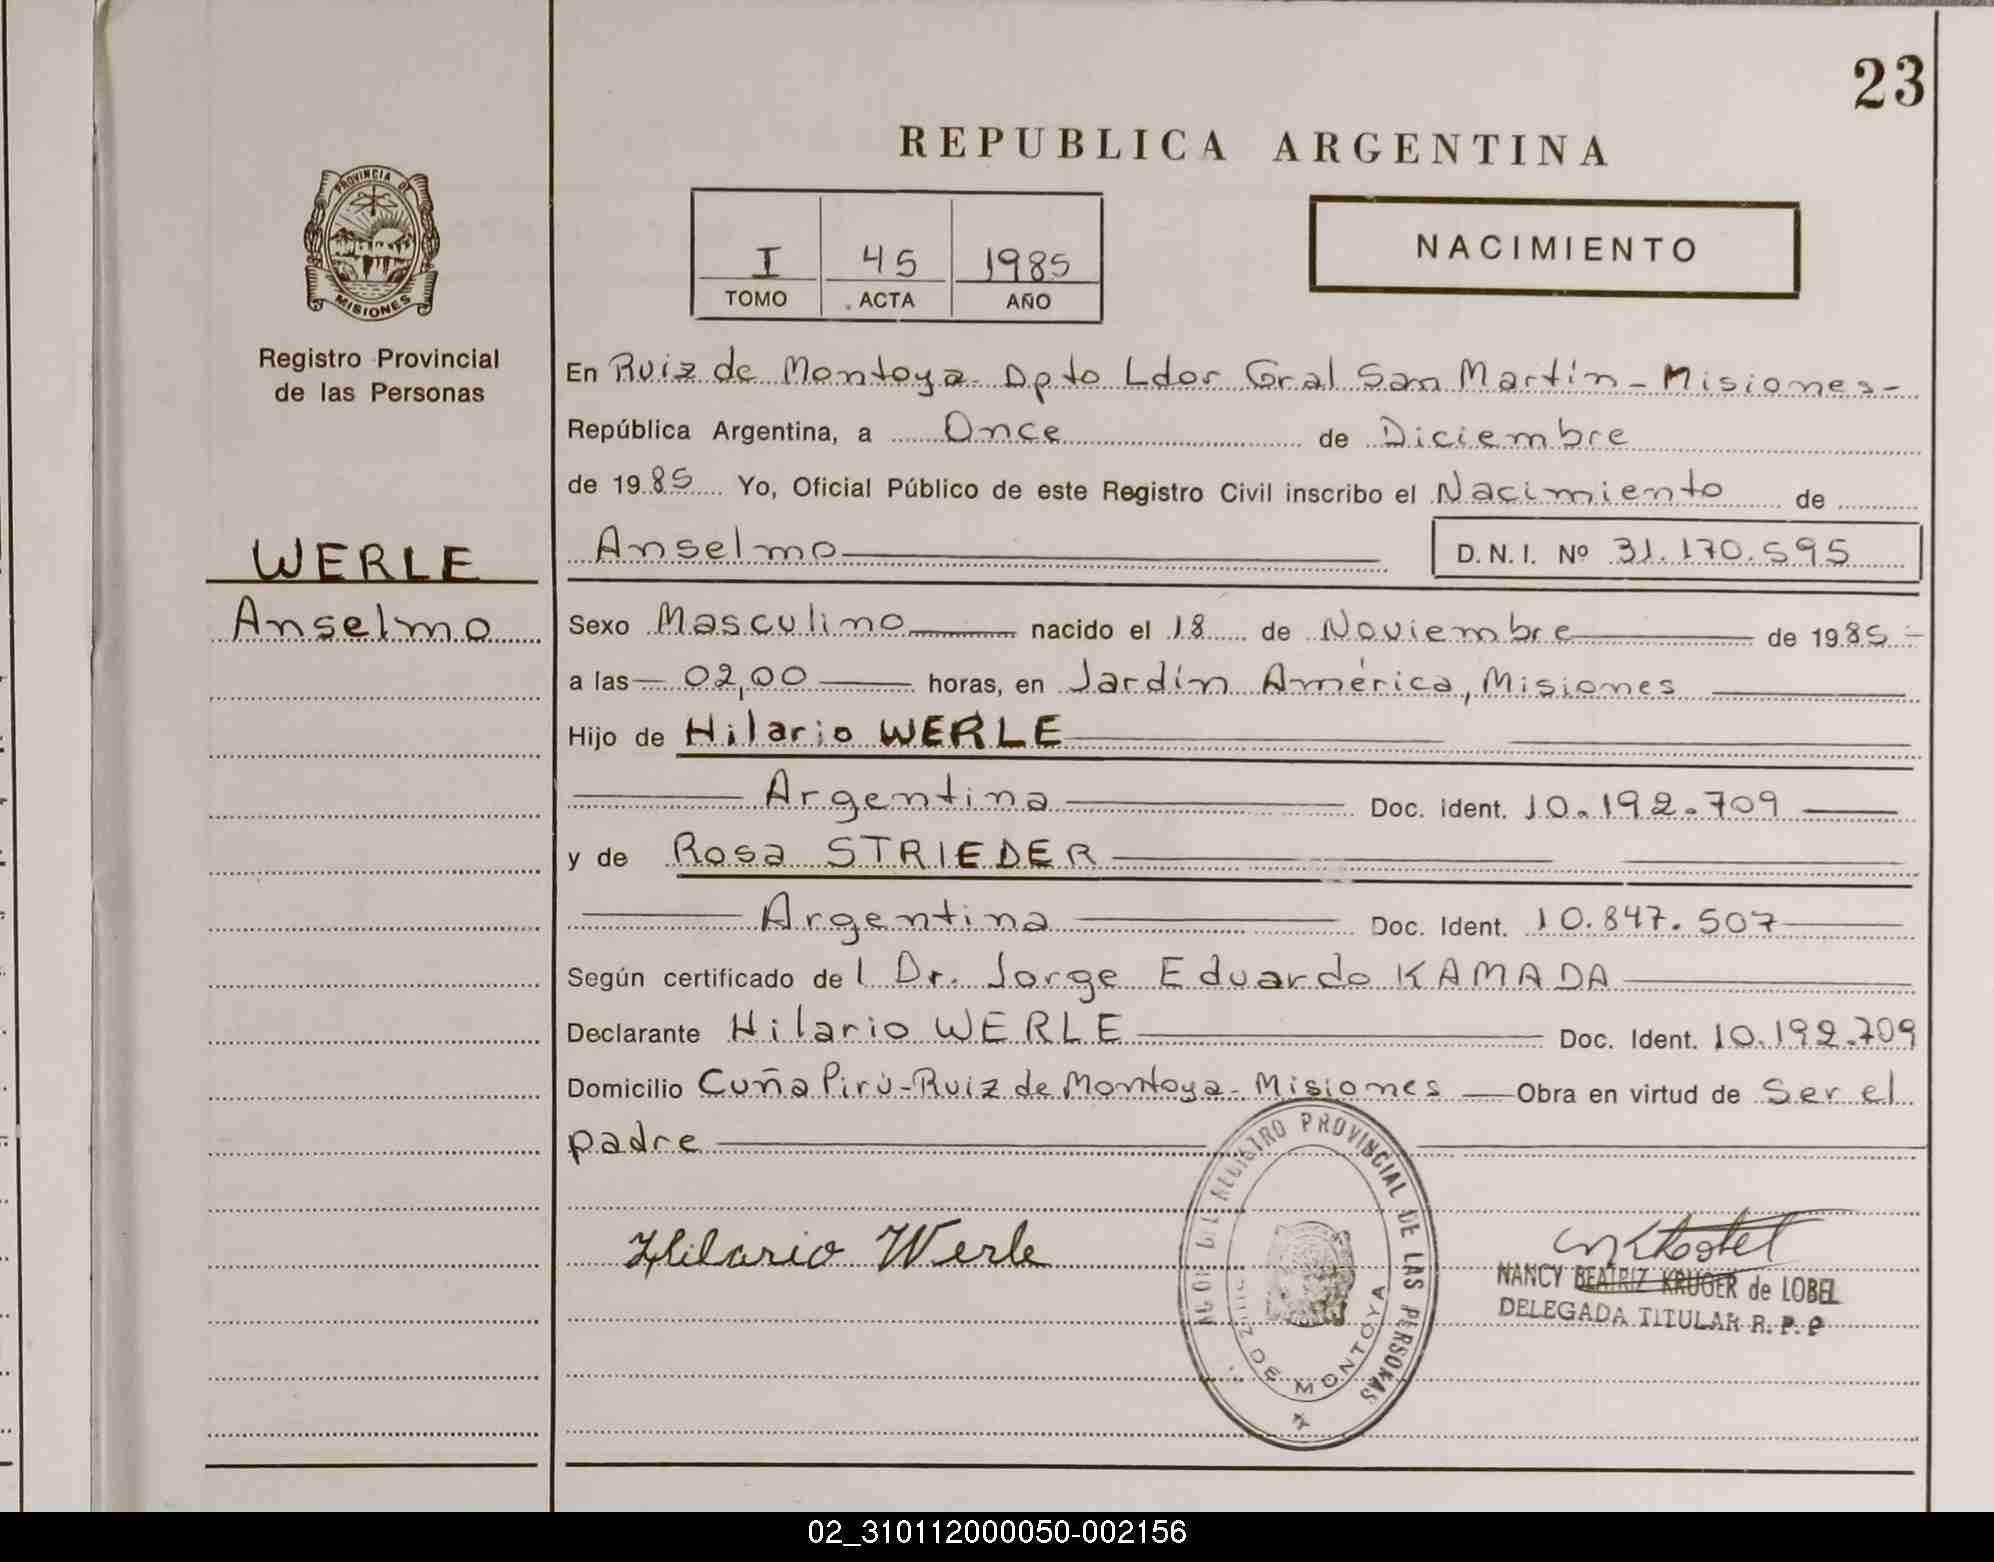 23
REPUBLICA ARGENTINA
PROVINCIA DE
MISIONES
Registro Provincial
de las Personas
I 45 1985
TOMO ACTA AÑO
NACIMIENTO
En Ruiz de Montoya. Dpto Ldor Gral San Martín - Misiones-
República Argentina, a Once de Diciembre
de 1985 Yo, Oficial Público de este Registro Civil inscribo el Nacimiento de
WERLE
Anselmo
Anselmo D.N.I. Nº 31.170.595
Sexo Masculino nacido el 18 de Noviembre de 1985-
a las 02,00 horas, en Jardín América, Misiones
Hijo de Hilario WERLE
Argentina Doc. ident. 10.192.709
y de Rosa STRIEDER
Argentina Doc. Ident. 10.847.507
Según certificado del Dr. Jorge Eduardo KAMADA
Declarante Hilario WERLE Doc. Ident. 10.192.709
Domicilio Cuña Pirú-Ruiz de Montoya-Misiones Obra en virtud de Ser el
padre
Hilario Werle
REGISTRO PROVINCIAL DE LAS PERSONAS
DE MONTOYA
NANCY BEATRIZ KRUGER de LOBEL
DELEGADA TITULAR R.P.P
02_310112000050-002156